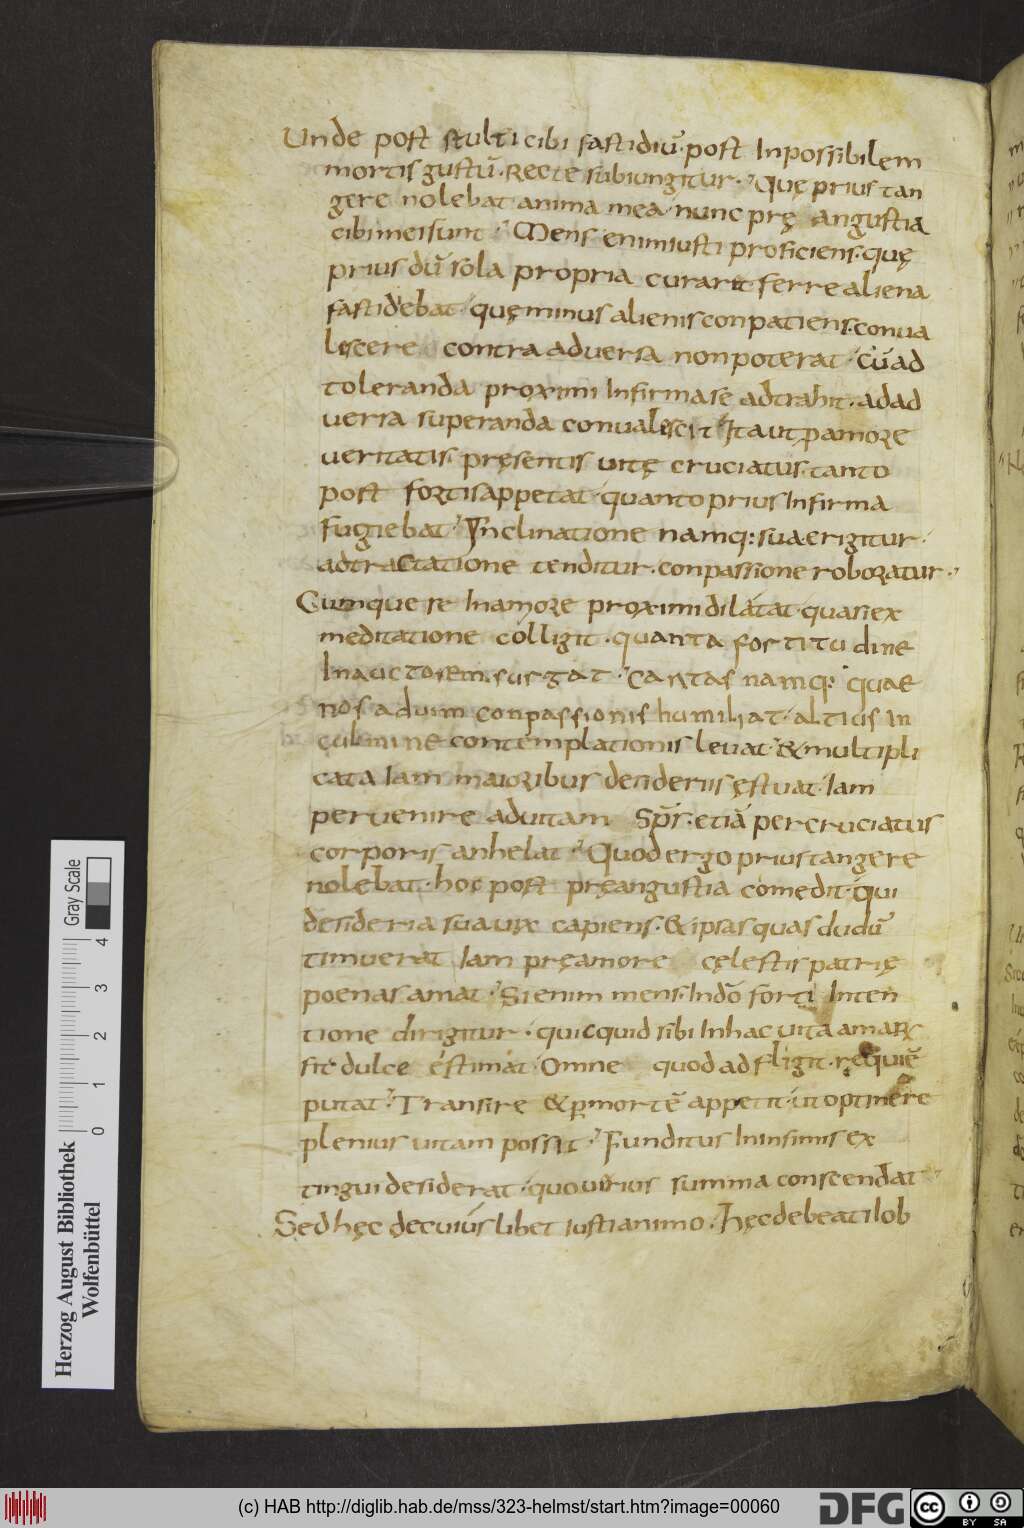 Unde post stulti cibi fastidiū· post Inpossibilem
mortis gustū· Recte subiungitur· Quę prius tan
gere nolebat anima mea· nunc prę angustia
cibi mei sunt· Mens enim iusti proficiens· quę
prius dū sola propria curaret ferre aliena
fastidebat· quę minus alienis conpatiens· conua
lescere contra aduersa non poterat· Cū ad
toleranda proximi Infirma se adtrahit· ad ad
uersa superanda conualescit· Ita ut pamore
ueritatis· pręsentis uitę cruciatus· tanto
post fortis appetat· quanto prius Infirma
fugiebat· Inclinatione namq: sua erigitur·
adtractatione tenditur· conpassione roboratur·
Cumque se In amore proximi dilatat· quasi ex
meditatione colligit· quanta fortitudine
In auctorem surgat· Caritas namq: quae
nos ad uim conpassionis humiliat· altius In
culmine contemplationis leuat· & multipli
cata Iam maioribus desideriis ęstuat· Iam
peruenire ad uitam sp̄s· etiā per cruciatus
corporis anhelat· Quod ergo prius tangere
nolebat· hoc post prę angustia comedit· qui
desideria sua uix capiens· & ipsas quas dudū
timuerat Iam pręamore cęlestis patrię
poenas amat· Si enim mens· In dō forti Inten
tione dirigitur· quicquid sibi In hac uita amarum
sit dulce estimat· Omne quod adfligit· requiē
putat· Transire & p mortē appetit· ut optinere
plenius uitam possit· Funditus In infimis ex
tingui desiderat· quo uerius summa conscendat·
Sed hęc de cuius libet iusti animo· hęc de beati Iob
Herzog August Bibliothek
Wolfenbüttel
Gray Scale
0 1 2 3 4
(c) HAB http://diglib.hab.de/mss/323-helmst/start.htm?image=00060
DFG
cc BY SA